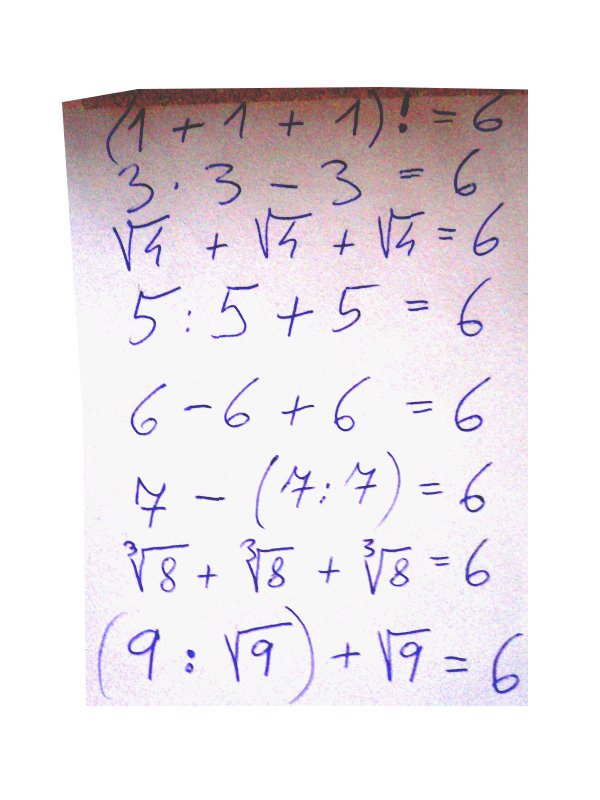 (1 + 1 + 1)! = 6
3 · 3 - 3 = 6
√4 + √4 + √4 = 6
5 : 5 + 5 = 6
6 - 6 + 6 = 6
7 - (7 : 7) = 6
∛8 + ∛8 + ∛8 = 6
(9 : √9) + √9 = 6